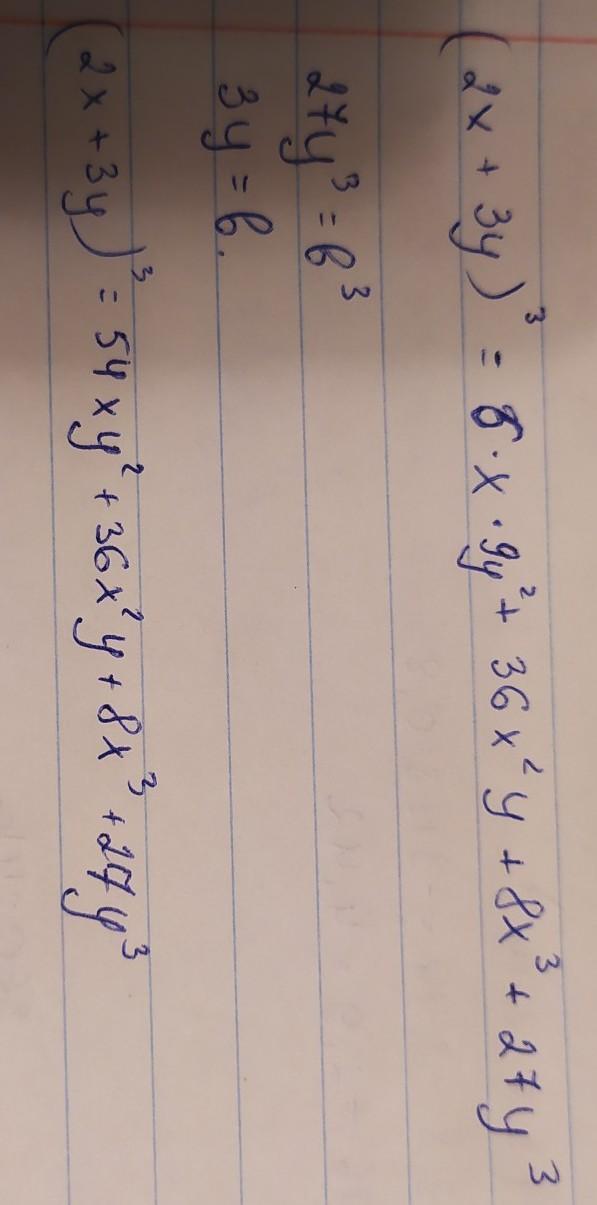 (2x + 3y)³ = 6 · x · 9y² + 36x²y + 8x³ + 27y³
27y³ = b³
3y = b.
(2x + 3y)³ = 54xy² + 36x²y + 8x³ + 27y³